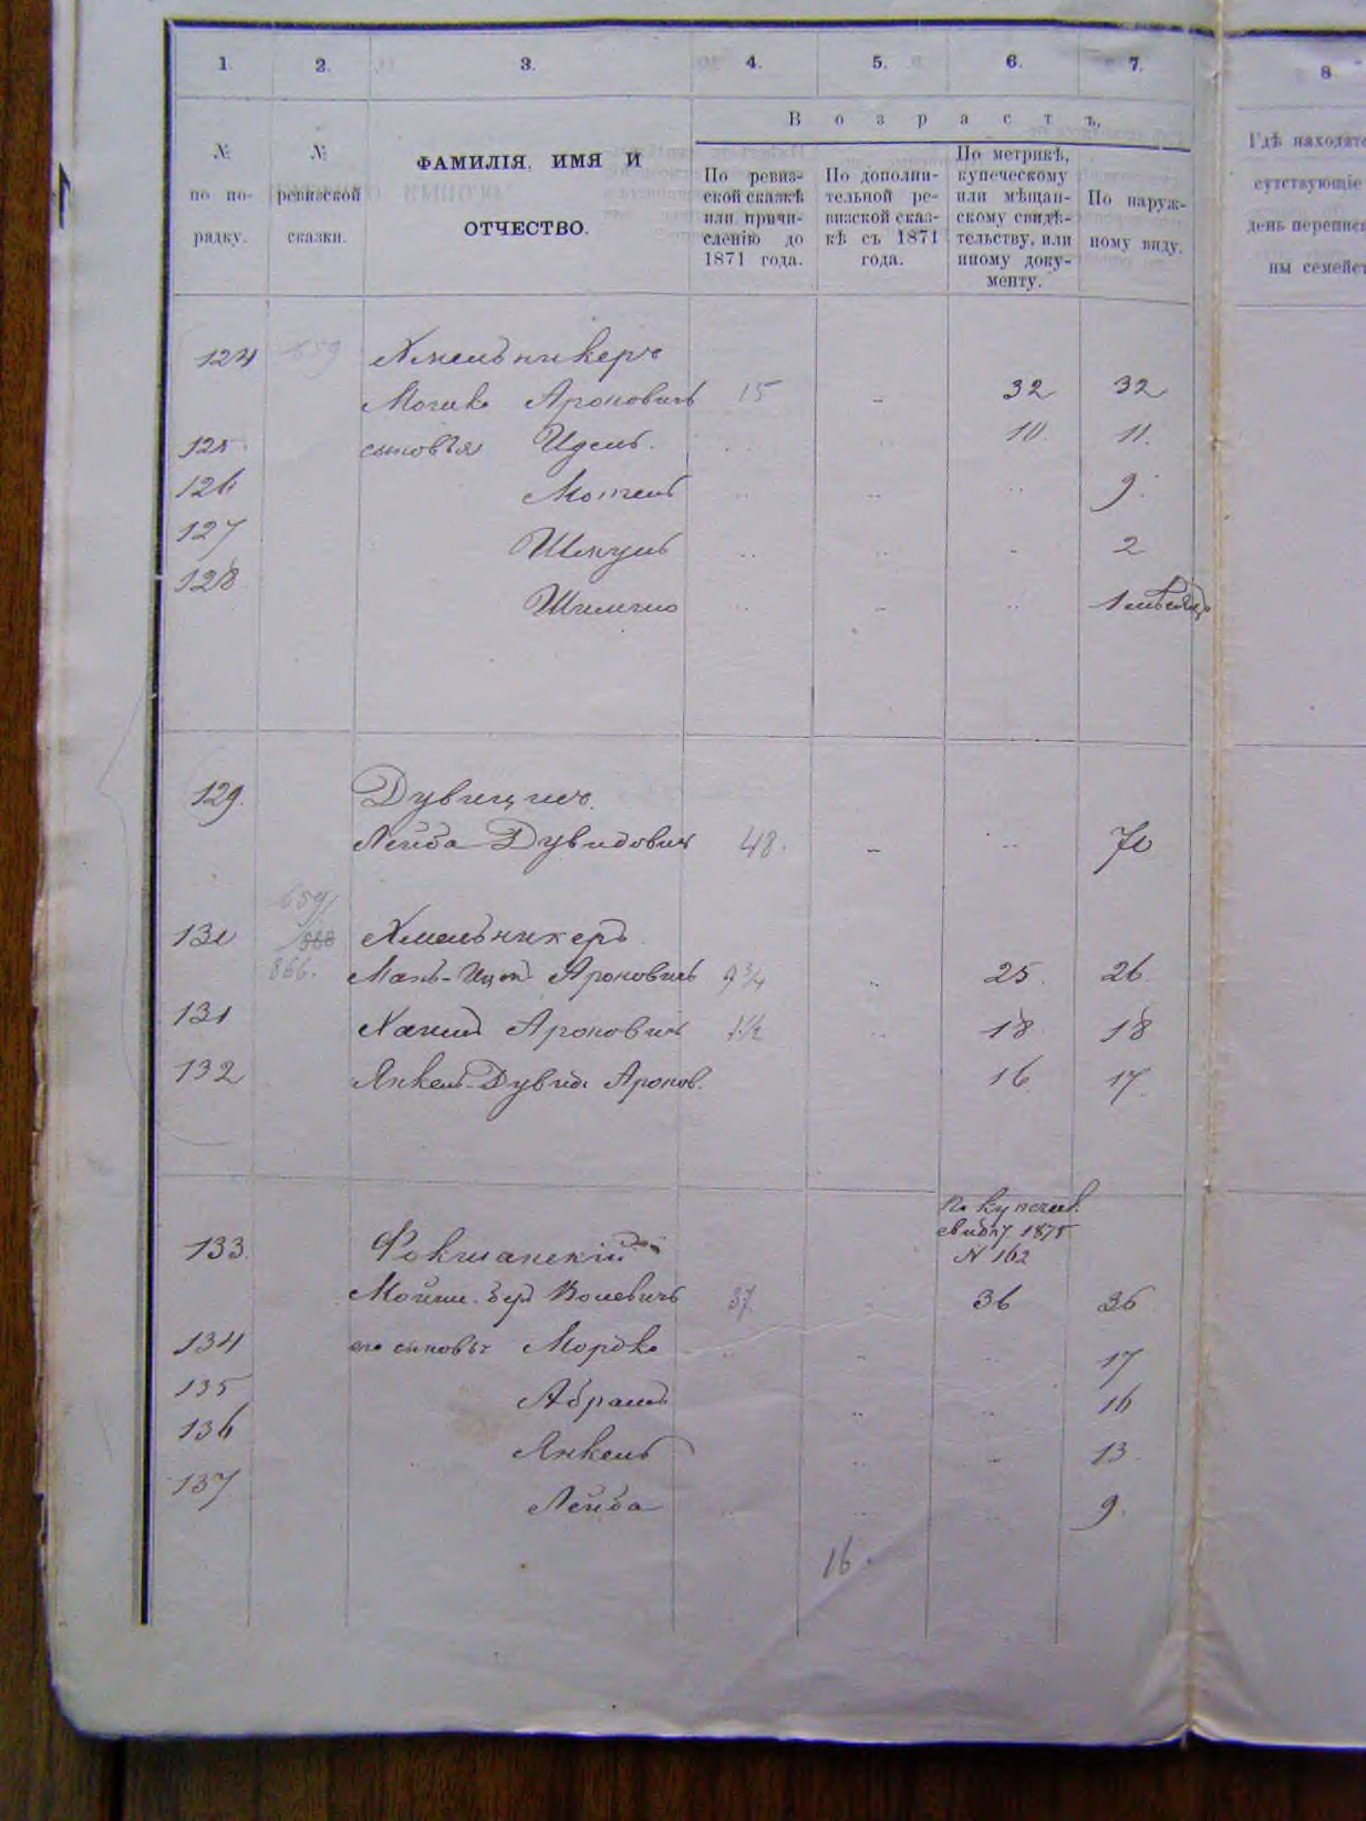 1. 2. 3. 4. 5. 6. 7. 8
Возрастъ,
№ по порядку.
№ ревизской сказки.
ФАМИЛІЯ, ИМЯ И
ОТЧЕСТВО.
По ревиз-
ской сказкѣ
или причи-
сленію до
1871 года.
По дополни-
тельной ре-
визской сказ-
кѣ съ 1871
года.
По метрикѣ,
купеческому
или мѣщан-
скому свидѣ-
тельству, или
иному доку-
менту.
По наруж-
ному виду.
Гдѣ находятс
сутствующіе
день переписи
ны семейст
124 659 Хмельникеръ
Мошко Ароновичъ 15 - 32 32
125. сыновья Идель. 10. 11.
126 Мотель 9.
127 Шмуль - 2
128 - 1 мѣсяцъ
129. Дувицкій
Лейба Дувидовичъ 48. - 70
659
130 Хмельникеръ
866. Ароновичъ 9¾ 25. 26
131 Ароновичъ 1½ 18 18
132 Янкель-Дувидъ Аронов. 16. 17.
По купечес.
свидѣт. 1875
N 162
133. Фокшанскій
Мойше-Беръ Волевичъ 37 36 36
134 его сыновья Мордко 17
135 Абрамъ 16
136 Янкель - 13
137 Лейба 9.
16.